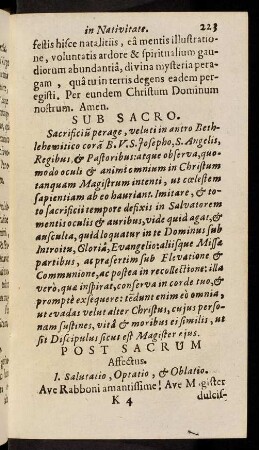 in Nativitate. 223
festis hisce natalitiis, eâ mentis illustratio-
ne, voluntatis ardore & spiritualium gau-
diorum abundantiâ, divina mysteria pera-
gam, quâ tu in terris degens eadem per-
egisti. Per eundem Christum Dominum
nostrum. Amen.
SUB SACRO.
Sacrificiũ perage, veluti in antro Beth-
lehemitico corã B. V. S. Josepho, S. Angelis,
Regibus, & Pastoribus: atque observa, quo-
modo oculi & animi omnium in Christum
tanquam Magistrum intenti, ut cœlestem
sapientiam ab eo hauriant. Imitare, & to-
to sacrificii tempore defixis in Salvatorem
mentis oculis & auribus, vide quid agat, &
ausculta, quid loquatur in te Dominus sub
Introitu, Gloriâ, Evangelio: aliisque Missæ
partibus, ac præsertim sub Elevatione &
Communione, ac postea in recollectione: illa
verò, qua inspirat, conserva in corde tuo, &
promptè exsequere: tẽdunt enim eò omnia,
ut evadas velut alter Christus, cujus perso-
nam sustines, vitâ & moribus ei similis, ut
sit Discipulus sicut est Magister ejus.
POST SACRUM
Affectus.
I. Salutatio, Optatio, & Oblatio.
Ave Rabboni amantissime! Ave Magister
K 4 dulcis-